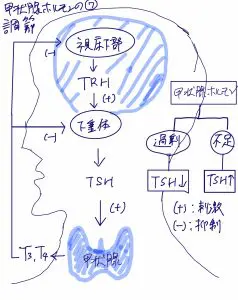 甲状腺ホルモンの⑦
調節
視床下部
(-)
TRH
(+)
下垂体
(-)
TSH
(+)
T3, T4
甲状腺
甲状腺ホルモン
過剰
不足
TSH↓
TSH↑
(+): 刺激
(-): 抑制